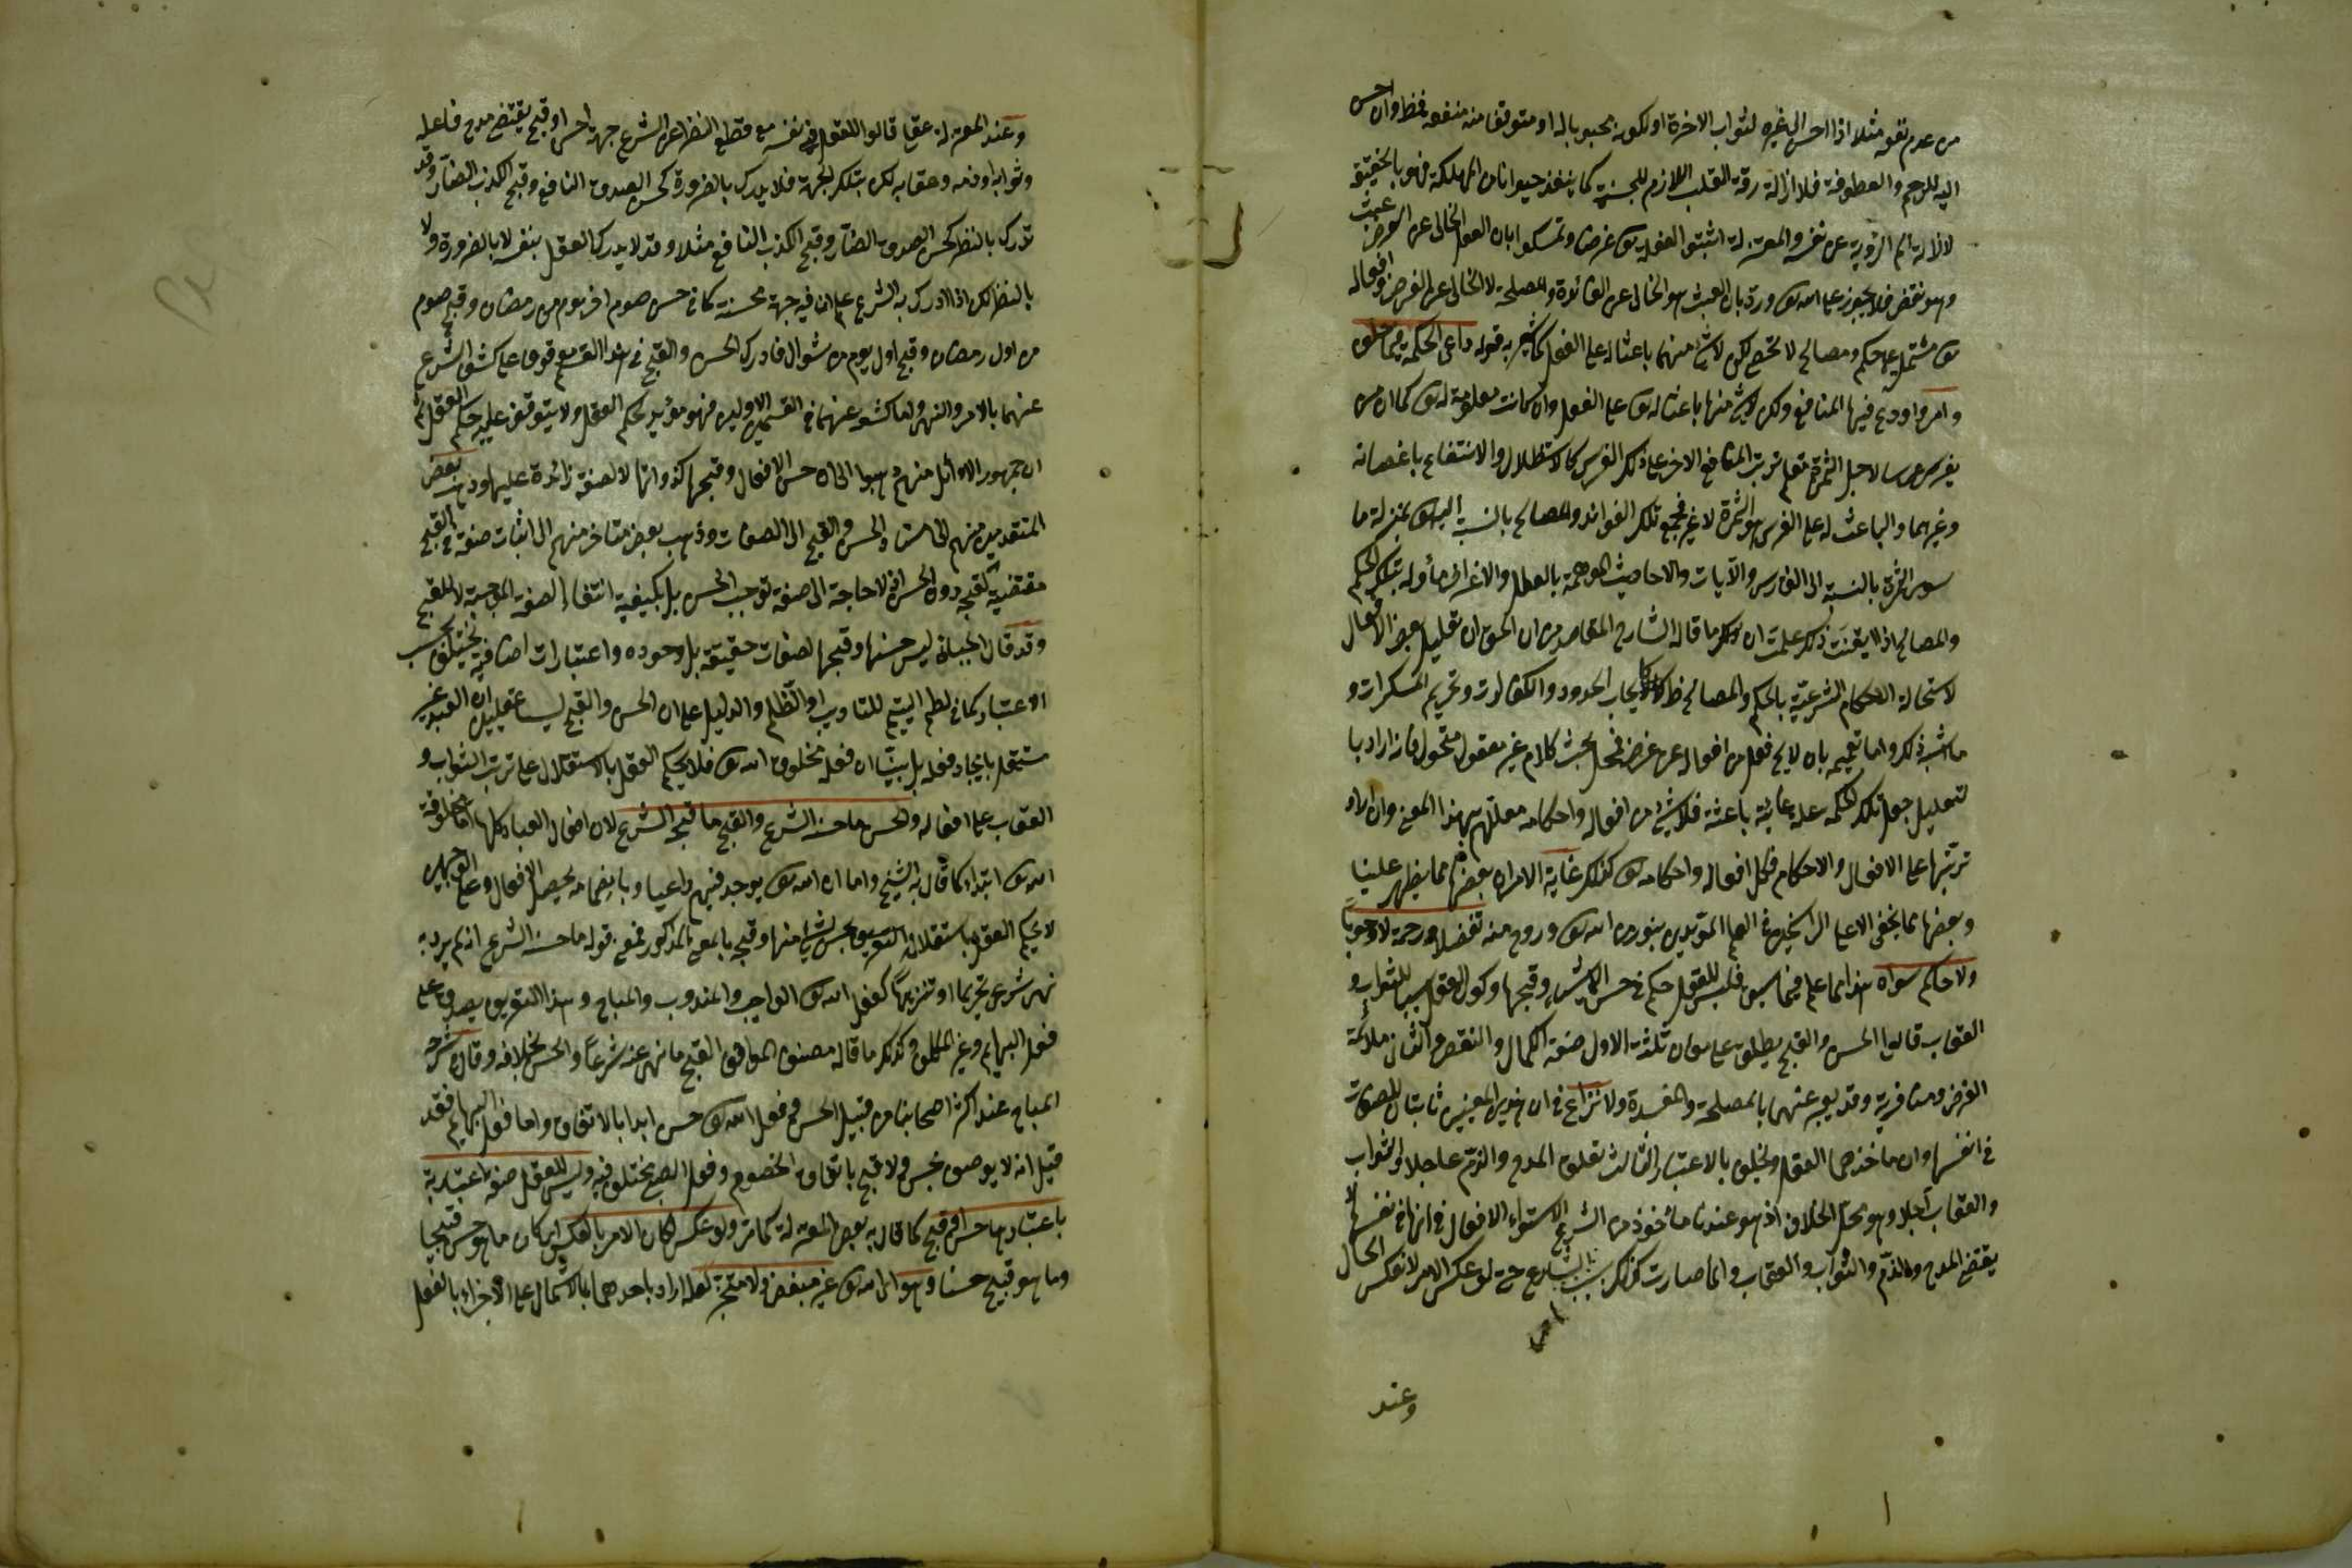 من عدم نفعه مثلا اذا احسن الى غيره لثواب الاخرة او لكونه محبوبا له او متوقفا منه منفعة فظ وان احسن
اليه للرحم والعطوفة فلازالة رقة القلب اللازم للجنسية كما ينقذ حيوانا من المهلكة فهو بالحقيقة
لازالة الم الرؤية عن نفسه والمعتزلة اثبتوا لفعله تعالى غرضا وتمسكوا بان الفعل الخالى عن الغرض عبث
وهو نقص فلا يجوز على الله تعالى ورد بان العبث هو الخالى عن الفائدة والمصلحة لا الخالى عن الغرض وافعاله
تعالى مشتمل على حكم ومصالح لا تحصى لكن لا شئ منها باعثا له على الفعل كما يشير به قوله راعى الحكمة فيما خلق
وامر واودع فيها المنافع ولكن لا شئ منها باعثا له تعالى على الفعل وان كانت معلومة له تعالى كما ان من
يغرس غرسا لاجل الثمرة يعلم ترتب المنافع الاخر على ذلك الغرس كالاستظلال والانتفاع باغصانه
وغيرهما والباعث له على الغرس هو الثمرة لا غير فجميع تلك الفوائد والمصالح بالنسبة اليه تعالى بمنزلة ما
سوى الثمرة بالنسبة الى الغارس والآيات والاحاديث الموهمة بالعلل والاغراض مأولة بتلك الحكم
والمصالح اذا ايقنت ذلك علمت ان ما قاله الشارح المقاصد من ان الحق ان تعليل بعض الافعال
لا سيما الاحكام الشرعية بالحكم والمصالح ظ كايجاب الحدود والكفارات وتحريم المسكرات و
ما اشبه ذلك واما تعميمه بان لا يخ فعل من افعاله عن غرض فمحل بحث كلام غير معقول منحول فانه ان اراد با
لتعليل جعل تلك الحكمة علة غائية باعثة فلا شئ من افعاله واحكامه معللة بهذا المعنى وان اراد
ترتبها على الافعال والاحكام فكل افعاله واحكامه تعالى كذلك غاية الامر ان بعضها مما يظهر علينا
وبعضها مما يخفى الا على الراسخين فى العلم المؤيدين بنور من الله تعالى وروح منه تفضلا ورحمة لا وجوبا
ولا حاكم سواه هذا مما علم فيما سبق فليس للعقل حكم فى حسن الاشياء وقبحها وكون الفعل سببا للثواب و
العقاب قالوا الحسن والقبح يطلق على معان ثلثة الاول صفة الكمال والنقص والثانى ملائمة
الغرض ومنافرته وقد يعبر عنهما بالمصلحة والمفسدة ولا نزاع فى ان هذين المعنيين ثابتان للصفات
فى انفسها وان مأخذهما العقل ويختلف بالاعتبار الثالث تعلق المدح والذم عاجلا والثواب
والعقاب آجلا وهو محل الخلاف اذ هو عندنا مأخوذ من الشرع لاستواء الافعال فى انها فى نفسها لا
يقتضى المدح والذم والثواب والعقاب وانما صارت كذلك بسبب الشارع حتى لو عكس الامر لانعكس الحال
وعند
وعند المعتزلة عقلى قالوا للفعل فى نفسه مع قطع النظر عن الشرع جهة حسن او قبح يقتضى مدح فاعله
وثوابه او ذمه وعقابه لكن تلك الجهة قد يدرك بالضرورة كحسن الصدق النافع وقبح الكذب الضار وقد
تدرك بالنظر كحسن الصدق الضار وقبح الكذب النافع مثلا وقد لا يدرك العقل بنفسه لا بالضرورة ولا
بالنظر لكن اذا ادرك به الشرع علم ان فيه جهة محسنة كما فى حسن صوم اخر يوم من رمضان وقبح صوم
من اول رمضان وقبح اول يوم من شوال فادراك الحسن والقبح فى هذا القسم موقوف على كشف الشرع
عنهما بالامر والنهى واما كشفه عنهما فى القسمين الاولين فهو مؤيد لحكم العقل ولا يتوقف عليه حكم العقل ثم
ان جمهور الاوائل منهم ذهبوا الى ان حسن الافعال وقبحها لذواتها لا لصفة زائدة عليها وذهب بعض
المتقدمين منهم الى استناد الحسن والقبح الى الصفات وذهب بعض متأخر منهم الى اثبات صفة فى القبح
مقتضية لقبحه دون الحسن اذ لا حاجة الى صفة توجب الحسن بل يكفيه انتفاء الصفة الموجبة للقبح
وقد قال الجبائى ليس حسنها وقبحها لصفات حقيقية بل لوجوه واعتبارات اضافية يختلف بحسب
الاعتبار كما فى لطم اليتيم للتأديب او الظلم والدليل على ان الحسن والقبح ليسا عقليين ان العبد غير
مستقل بايجاد فعله بل بينا ان فعله مخلوق الله تعالى فلا يحكم العقل بالاستقلال على ترتب الثواب و
العقاب على افعاله والحسن ما حسنه الشرع والقبح ما قبحه الشرع لان افعال العباد كلها اما مخلوقة
الله تعالى ابتداء كما قال به الشيخ واما ان الله تعالى يوجد فيهم داعيا وبانضمامه يحصل الافعال وعلى الوجهين
لا يحكم العقل باستقلاله بحسن شئ منها وقبحه بالمعنى المذكور فمعنى قوله ما حسنه الشرع انه لم يرد به
نهى شرعى تحريما او تنزيها كفعل الله تعالى الواجب والمندوب والمباح وهذا التعريف يصدق على
فعل البهائم وغير المكلف وكذلك ما قاله مصنف المواقف القبح ما نهى عنه شرعا والحسن بخلافه وقال شرحه
المباح عند اكثر اصحابنا من قبيل الحسن وفعل الله تعالى حسن ابدا بالاتفاق واما فعل البهائم فقد
قيل انه لا يوصف بحسن ولا قبح باتفاق الخصوم وفعل الصبى مختلف فيه وليس للفعل صفة اعتبارية
باعتبارها حسن او قبح كما قال به بعض المعتزلة كما مر ولو عكس لكان الامر بالعكس اى كان ما هو حسن قبيحا
وما هو قبيح حسنا وهو اى الله تعالى غير متبعض ولا متجز لعله اراد باحدهما الاشتمال على الاجزاء بالفعل